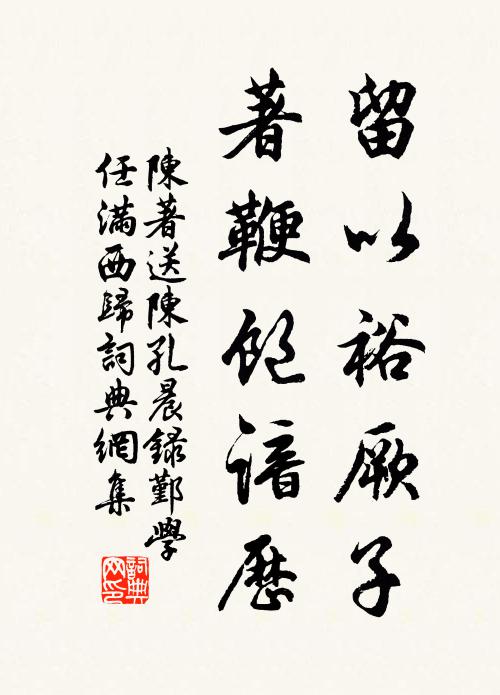 留以裕厥子
著鞭飽諳歷
陳著送陳孔晨錄鄞學
任滿西歸詞典網集
詞典网印